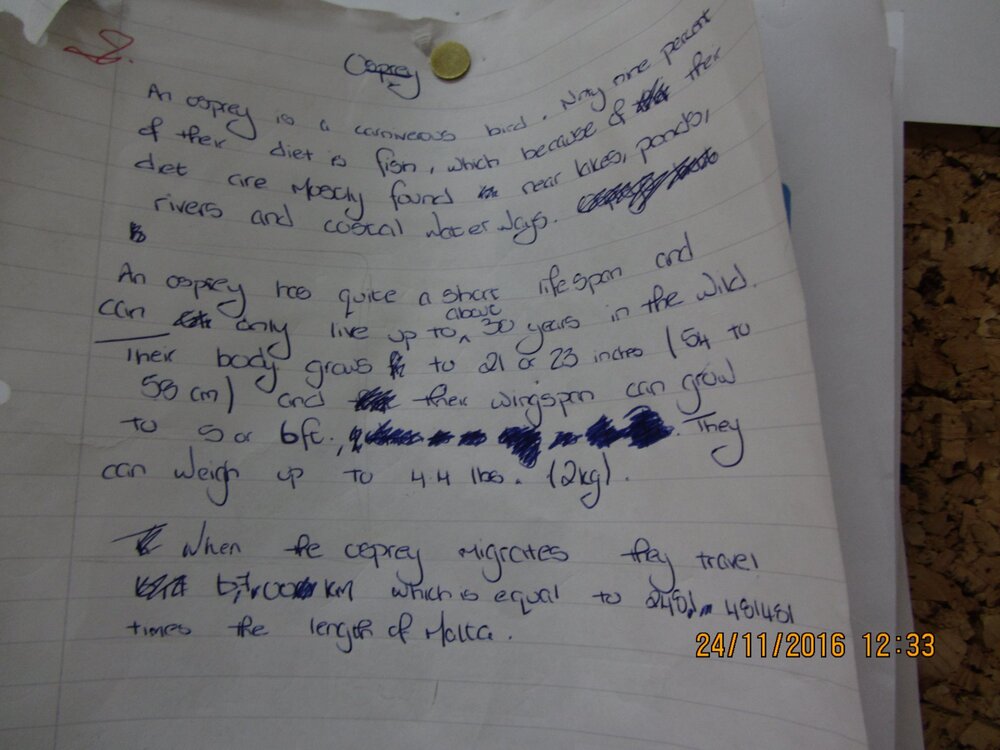 2.
Osprey
An osprey is a carniverous bird. Ninty nine percent
of their diet is fish, which because of their
diet are Mostly found near lakes, ponds,
rivers and costal water ways.
An osprey has quite a short lifespan and
can only live up to above 30 years in the wild.
Their body grows to 21 or 23 inches (54 to
58 cm) and their wingspan can grow
to 5 or 6ft. They
can weigh up to 4.4 lbs. (2kg).
When the osprey Migrates they travel
km which is equal to 2481.481481
times the length of Malta.
24/11/2016 12:33